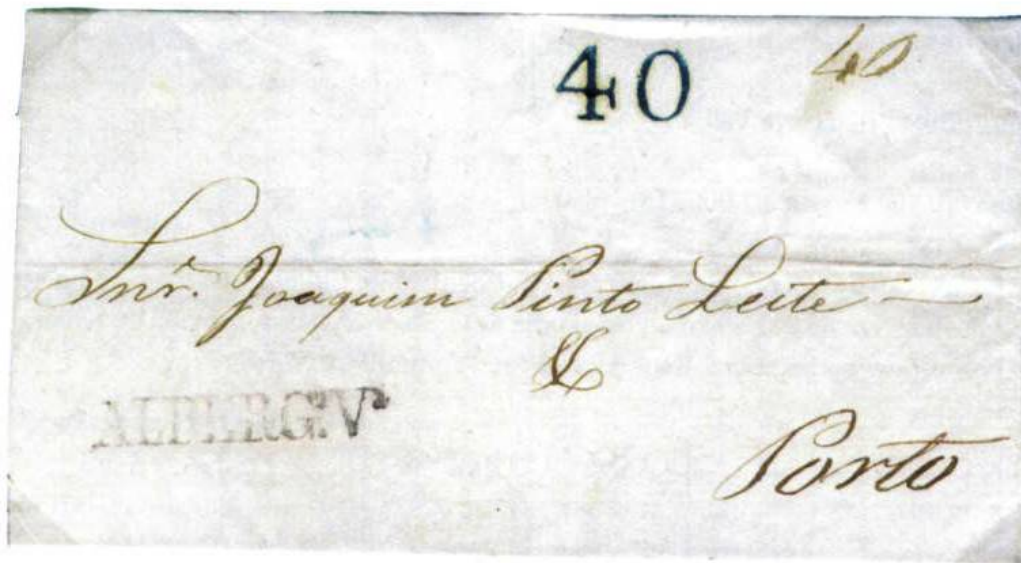 40 40
Snr. Joaquim Pinto Leite
&
ALBERG.V.ª
Porto